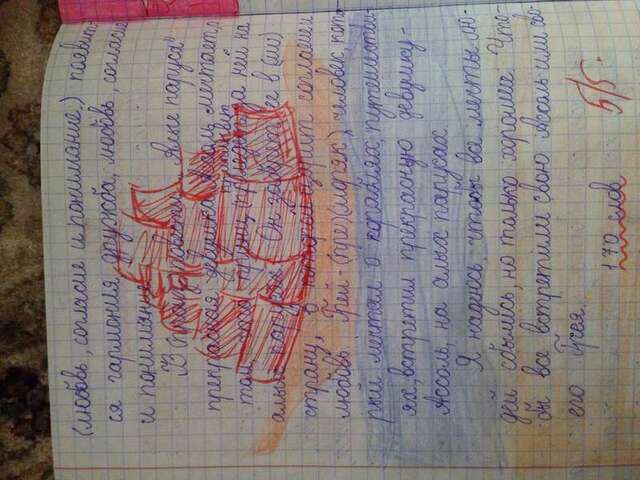 (любовь, согласие и понимание.) появит-
ся гармония дружба, любовь, согласие
и понимание.
В повести „Алые паруса"
прекрасная девушка Ассоль мечтает о
том, что принц приплывёт за ней на
алых парусах. Он заберёт её в
страну, в которой царит согласие и
любовь. Грей - (пре)(моряк), человек, кото-
рый мечтал о кораблях, путешестви-
ях, встретил прекрасную девушку -
Ассоль, на алых парусах.
Я надеюсь, чтобы все мечты лю-
дей сбылись, но только хорошие. Что-
бы все встретили свою Ассоль или сво-
его Грея.
170 слов
5/5